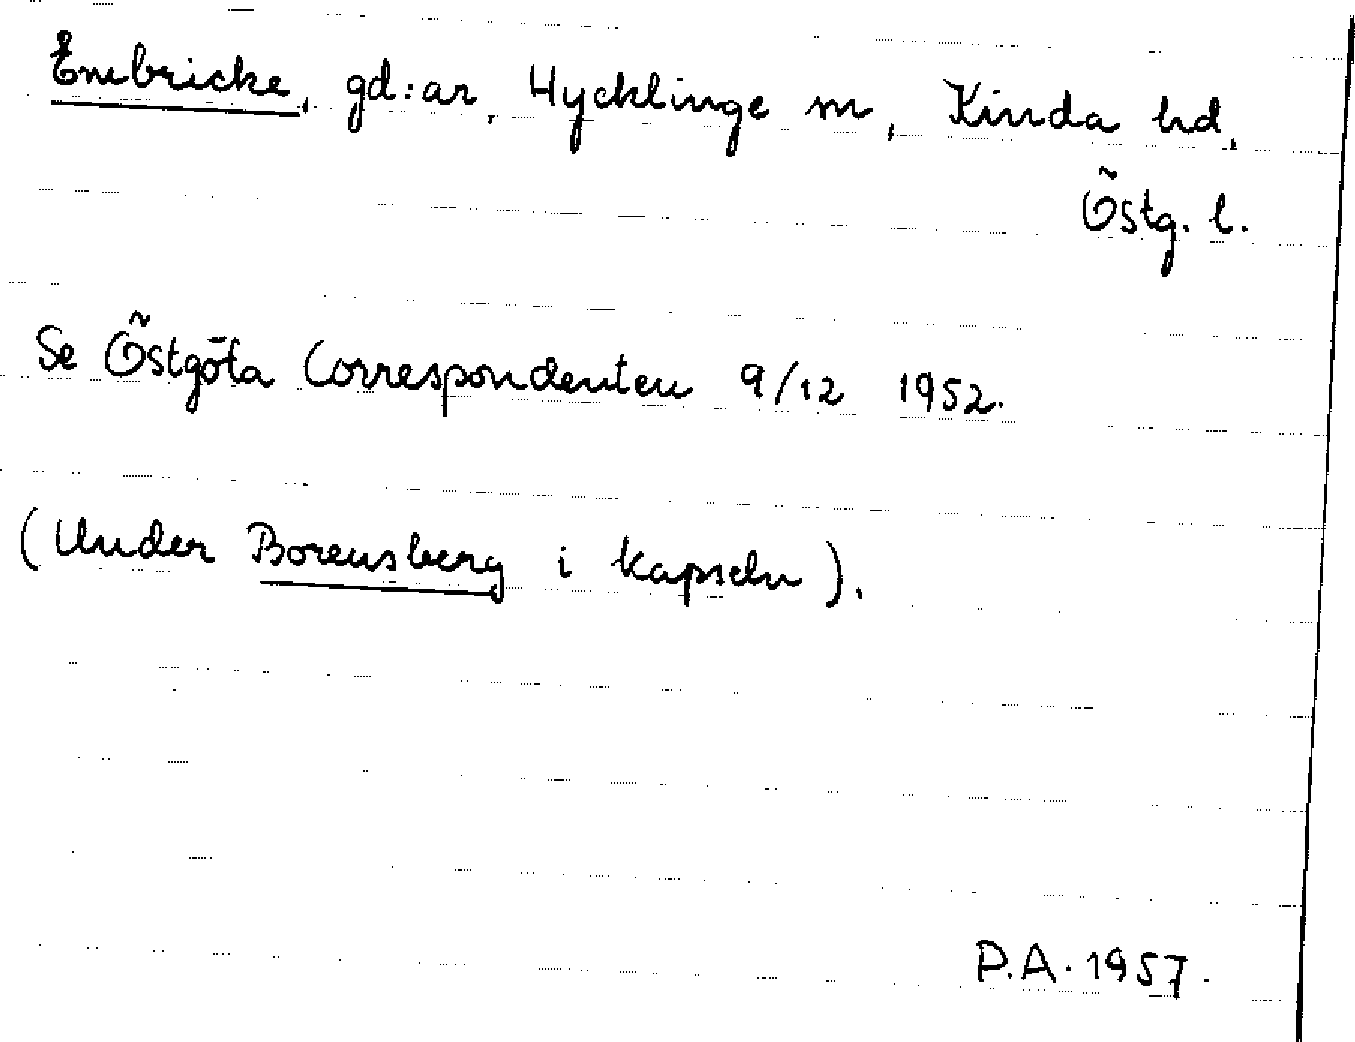 Embricke, gd:ar, Hycklinge sn, Kinda hd,
Östg. l.
Se Östgöta Correspondenten 9/12 1952.
(Under Borensberg i kapseln).
P.A. 1957.